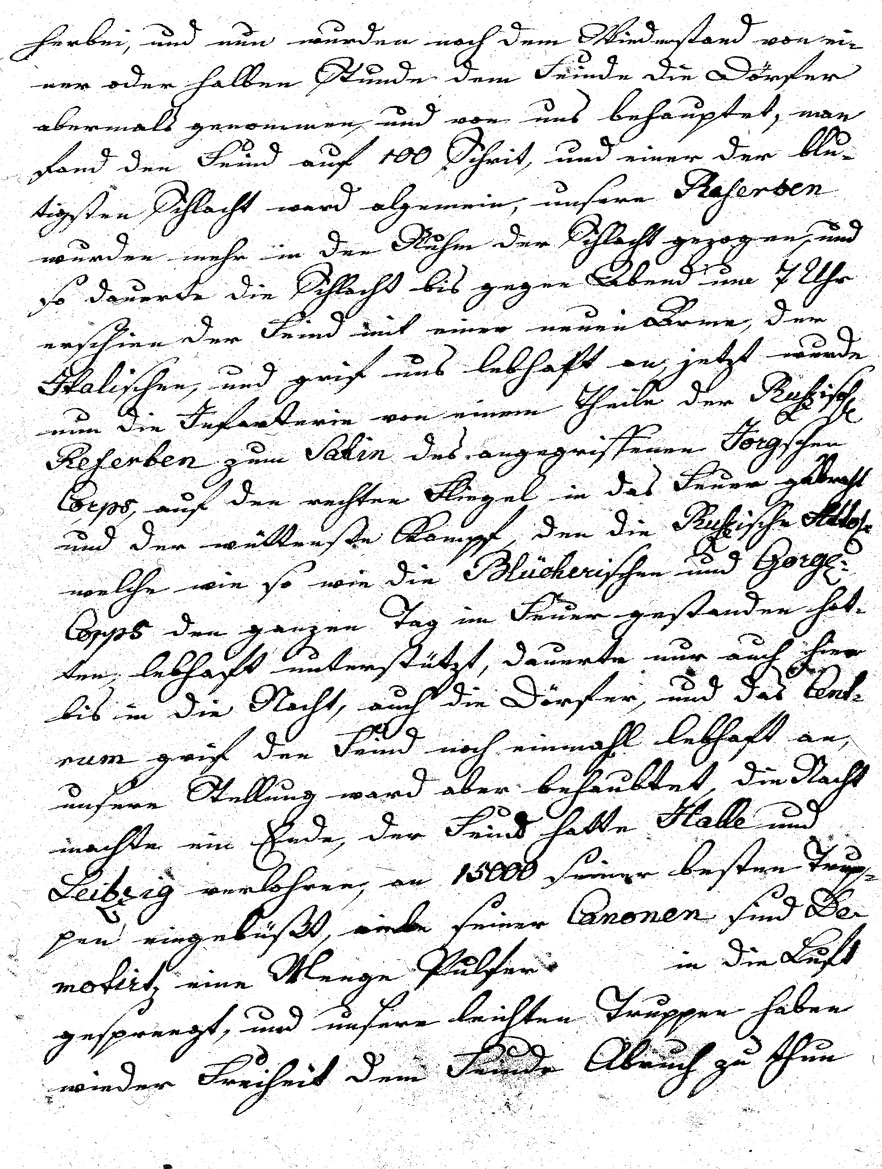 herbei, und nun wurden nach dem Wiederstand von ei-
ner oder halben Stunde dem Feinde die Dörfer
abermals genommen, und von uns behauptet, man
fand den Feind auf 100 Schrit, und einer der blu-
tigsten Schlacht ward algemein, unsere Reserben
wurden mehr in den Ruhm der Schlacht gezogen, und
so dauerte die Schlacht bis gegen Abend um 7 Uhr
erschien der Feind mit einer neuen Arme, der
Italischen, und grif uns lebhaft an, jetzt wurde
nun die Infanterie von einem Theile der Rußische
Reserben zum Sakin des angegriffenen Jorgschen
Corps, auf den rechten Fliegel in das Feuer gebracht
und der wüttenste Kampf, den die Rußische
welche wie so wie die Blücherischen und Gorge-
Corps den ganzen Tag im Feuer gestanden hat-
ten, lebhaft unterstützt, dauerte nur auch hier
bis in die Nacht, auch die Dörfer, und das Cent-
rum grif den Feind noch einmahl lebhaft an,
unsere Stellung ward aber behaubtet, die Nacht
machte ein Ende, der Feind hatte Halle und
Leibzig verlohren, an 15000 seiner besten Trup-
pen eingebüßt, viele seiner Canonen sind De-
motirt, eine Menge Pulfer in die Luft
gesprengt, und unsere leichten Truppen haben
wieder Freiheit dem Feinde Abruch zu thun